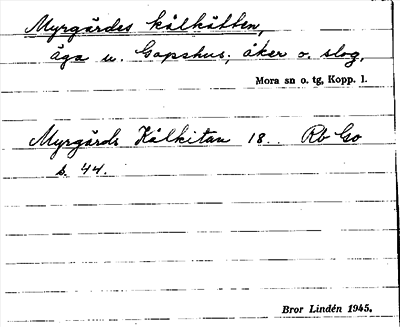 Myrgårdes kålkåtten,
äga u. Gopshus; åker o. slog,
Mora sn o. tg, Kopp. l.
Myrgårds Kålkitan 18.. Rb Go
s. 44.
Bror Lindén 1945.